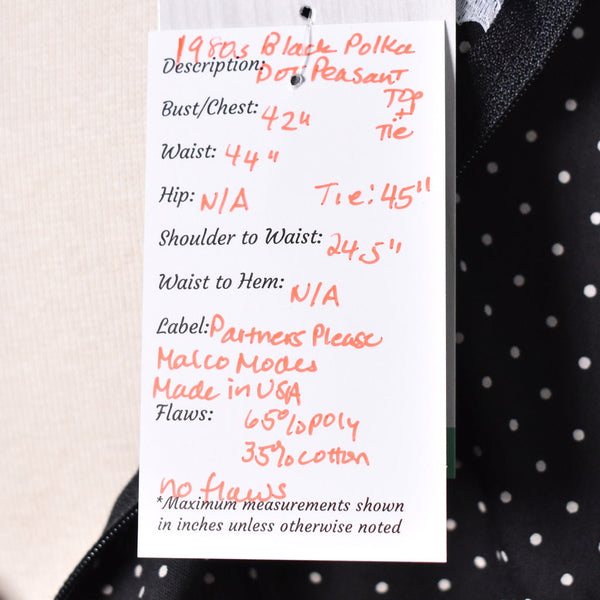 1980s Black Polka
Description: Dot Peasant
Top
+
Tie
Bust/Chest: 42"
Waist: 44"
Hip: N/A Tie: 45"
Shoulder to Waist: 24.5"
Waist to Hem: N/A
Label: Partners Please
Malco Modes
Made in USA
Flaws: 65% poly
35% cotton
no flaws
*Maximum measurements shown
in inches unless otherwise noted